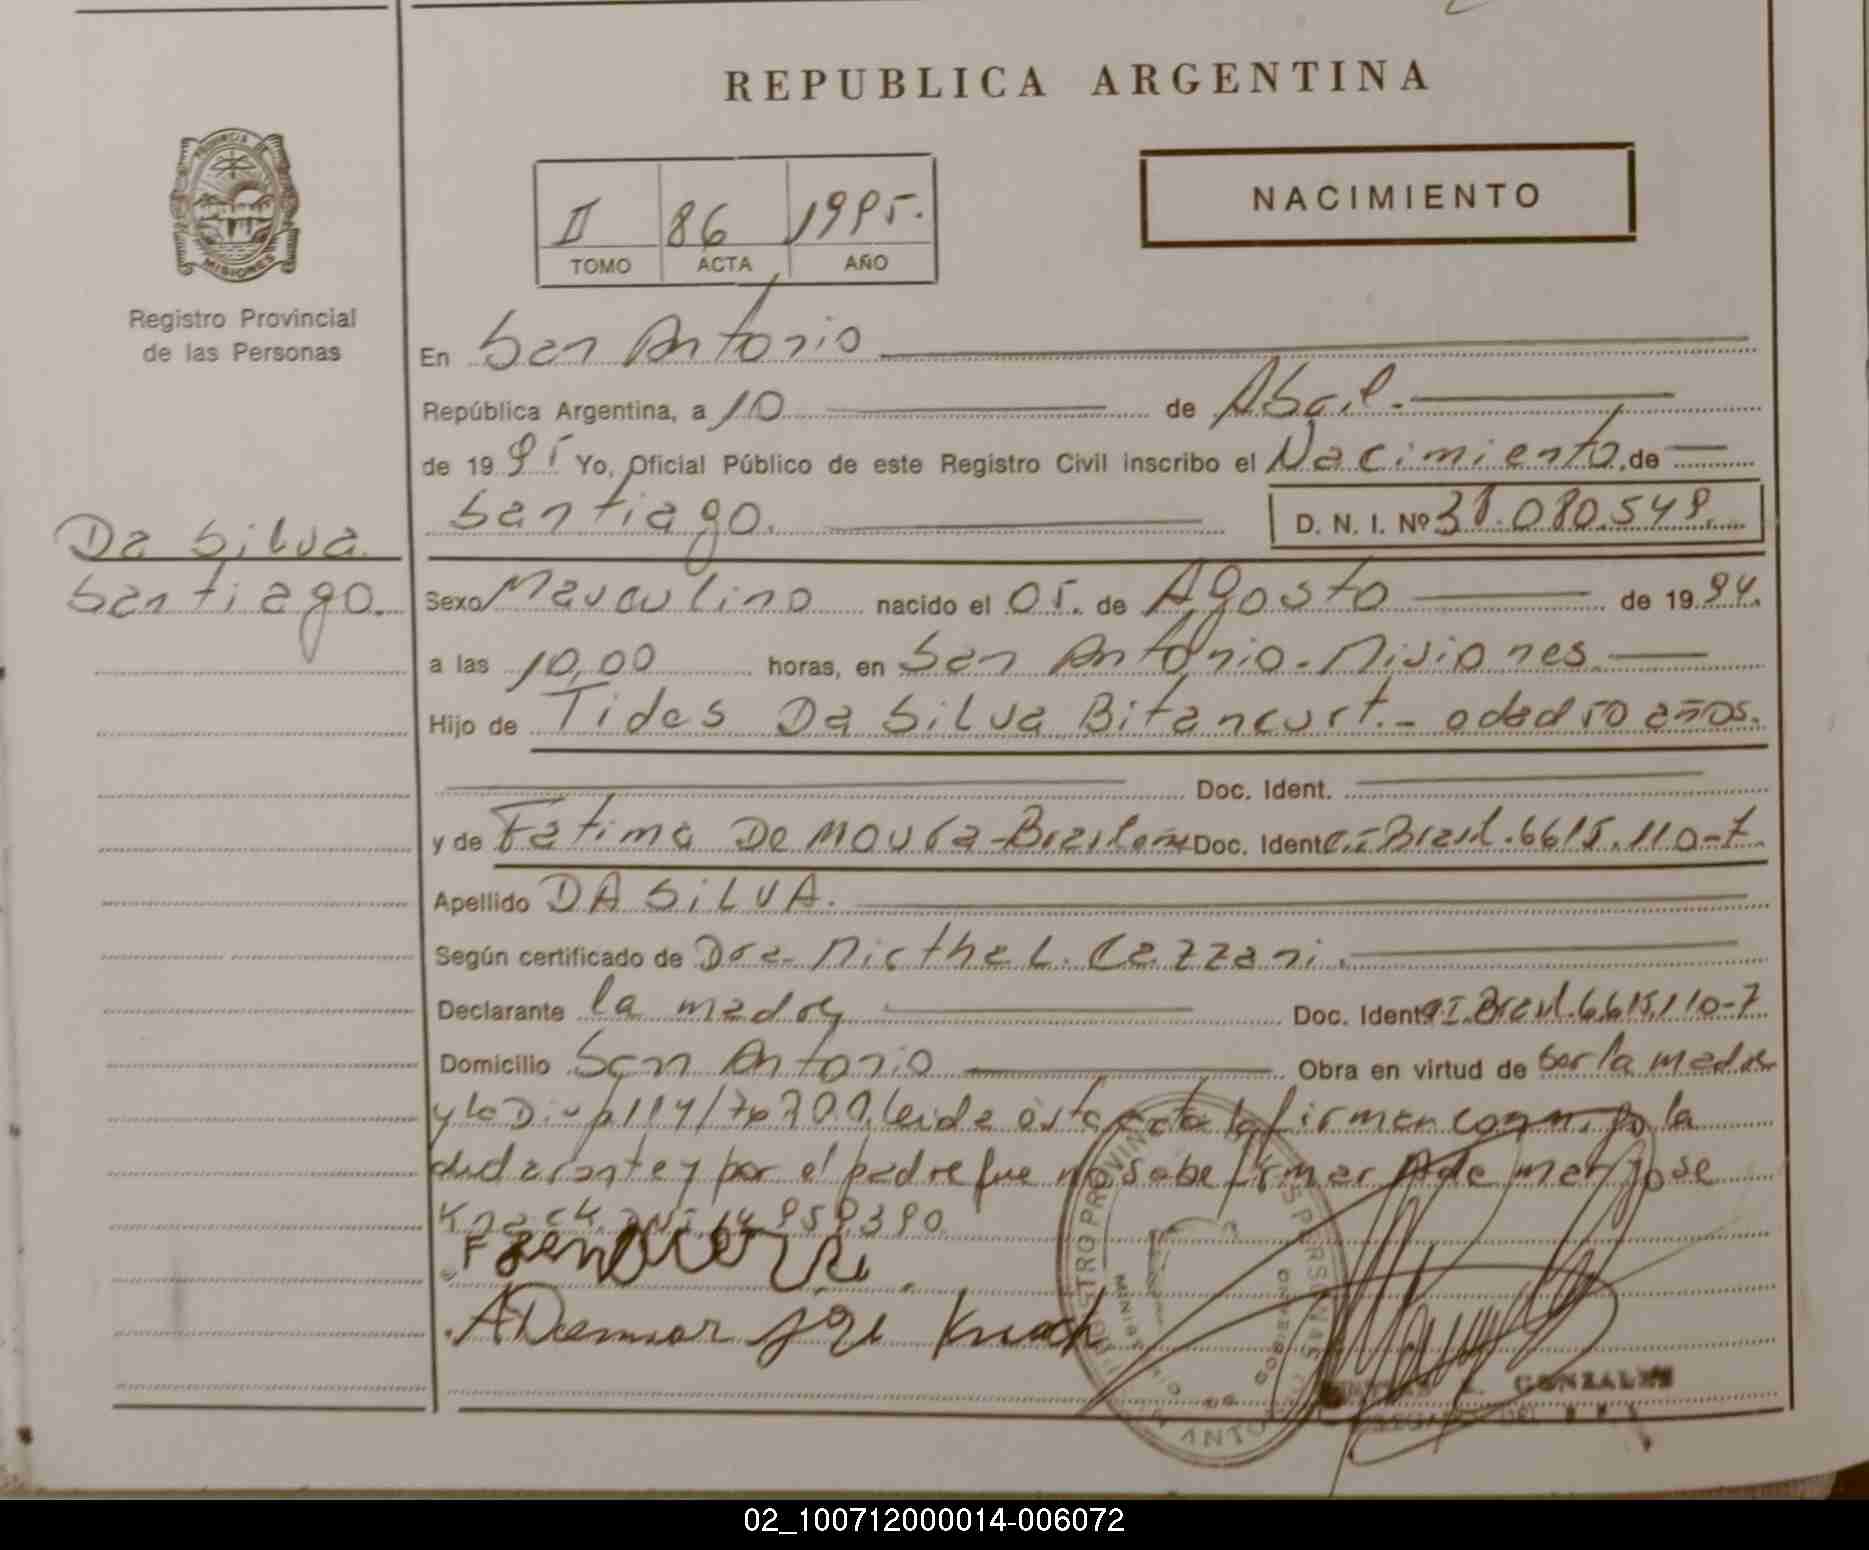 REPUBLICA ARGENTINA
PROVINCIA DE
MISIONES
Registro Provincial
de las Personas
II 86 1995.
TOMO ACTA AÑO
NACIMIENTO
En San Antonio
República Argentina, a 10 de Abril.
de 1995 Yo, Oficial Público de este Registro Civil inscribo el Nacimiento de
Santiago.
D. N. I. Nº 38.080.548.
Da Silva
Santiago.
Sexo Masculino nacido el 05. de Agosto de 1994.
a las 10,00 horas, en San Antonio - Misiones
Hijo de Tides Da Silva Bitancurt.- edad 50 años.
Doc. Ident.
y de Fatima De Moura - Brasilera Doc. Ident C.I Brasil.6615.110-7.
Apellido DA SILVA.
Según certificado de Dra. Mirtha L. Cazzani.
Declarante la madre Doc. Ident C.I. Brasil.6.615.110-7
Domicilio San Antonio Obra en virtud de ser la madre
y la Disp 114/76 leida esta acta la firman conmigo la
declarante y por el padre que no sabe firmar Ademar Jose
Knack DNI. 14.959.390
Ademar jose Knack
GONZALES
02_100712000014-006072